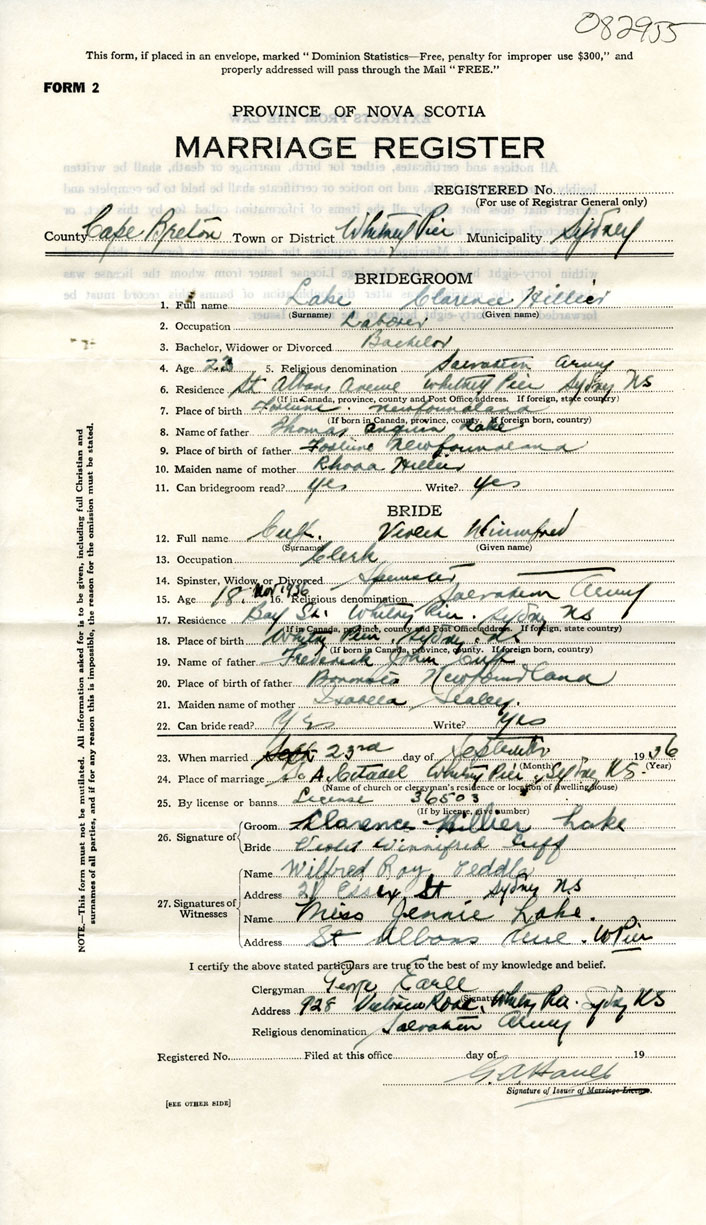 082955
This form, if placed in an envelope, marked "Dominion Statistics—Free, penalty for improper use $300," and
properly addressed will pass through the Mail "FREE."
FORM 2
PROVINCE OF NOVA SCOTIA
MARRIAGE REGISTER
REGISTERED No.
(For use of Registrar General only)
County Cape Breton Town or District Whitney Pier Municipality Sydney
BRIDEGROOM
1. Full name Lake Clarence Hillier
(Surname) (Given name)
2. Occupation Laborer
3. Bachelor, Widower or Divorced Bachelor
4. Age 23 5. Religious denomination Salvation Army
6. Residence St Albans Avenue Whitney Pier Sydney NS
(If in Canada, province, county and Post Office address. If foreign, state country)
7. Place of birth Fortune. Newfoundland
(If born in Canada, province, county. If foreign born, country)
8. Name of father Thomas Lake
9. Place of birth of father Fortune Newfoundland
10. Maiden name of mother Rhoda Hillier
11. Can bridegroom read? yes Write? yes
BRIDE
12. Full name Cuff. Violet Winnifred
(Surname) (Given name)
13. Occupation Clerk
14. Spinster, Widow or Divorced Spinster
15. Age 18. Nov 1936 16. Religious denomination Salvation Army
17. Residence Bay St. Whitney Pier. Sydney NS
(If in Canada, province, county and Post Office address. If foreign, state country)
18. Place of birth Whitney Pier. Sydney. N.S.
(If born in Canada, province, county. If foreign born, country)
19. Name of father Frederick John Cuff
20. Place of birth of father Newfoundland
21. Maiden name of mother Isabella Sealey.
22. Can bride read? Yes Write? Yes
23. When married Sept 23rd day of September 1936
(Month) (Year)
24. Place of marriage S. A. Citadel Whitney Pier, Sydney N.S.
(Name of church or clergyman's residence or location of dwelling house)
25. By license or banns License 36503
(If by license, give number)
26. Signature of Groom Clarence Hillier Lake
Bride Violet Winnifred Cuff
27. Signatures of Witnesses Name Wilfred Roy
Address 21 Essex St Sydney NS
Name Miss Jennie Lake.
Address St Albans Ave. W Pier
I certify the above stated particulars are true to the best of my knowledge and belief.
Clergyman George Earle
(Signature)
Address 928 Victoria Road, Whitney Pier. Sydney NS
Religious denomination Salvation Army
Registered No. Filed at this office day of 19
Signature of Issuer of Marriage License.
[SEE OTHER SIDE]
NOTE.—This form must not be mutilated. All information asked for is to be given, including full Christian and
surnames of all parties, and if for any reason this is impossible, the reason for the omission must be stated.